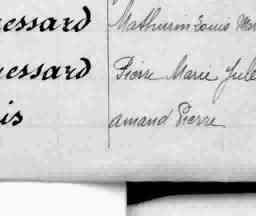 essard Mathurin Louis Mar
essard Pierre Marie Jule
is Amand Pierre